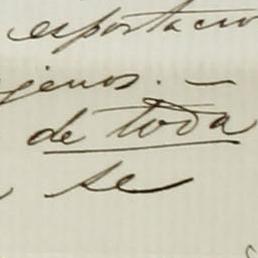 esportacio
genos. —
de toda
se